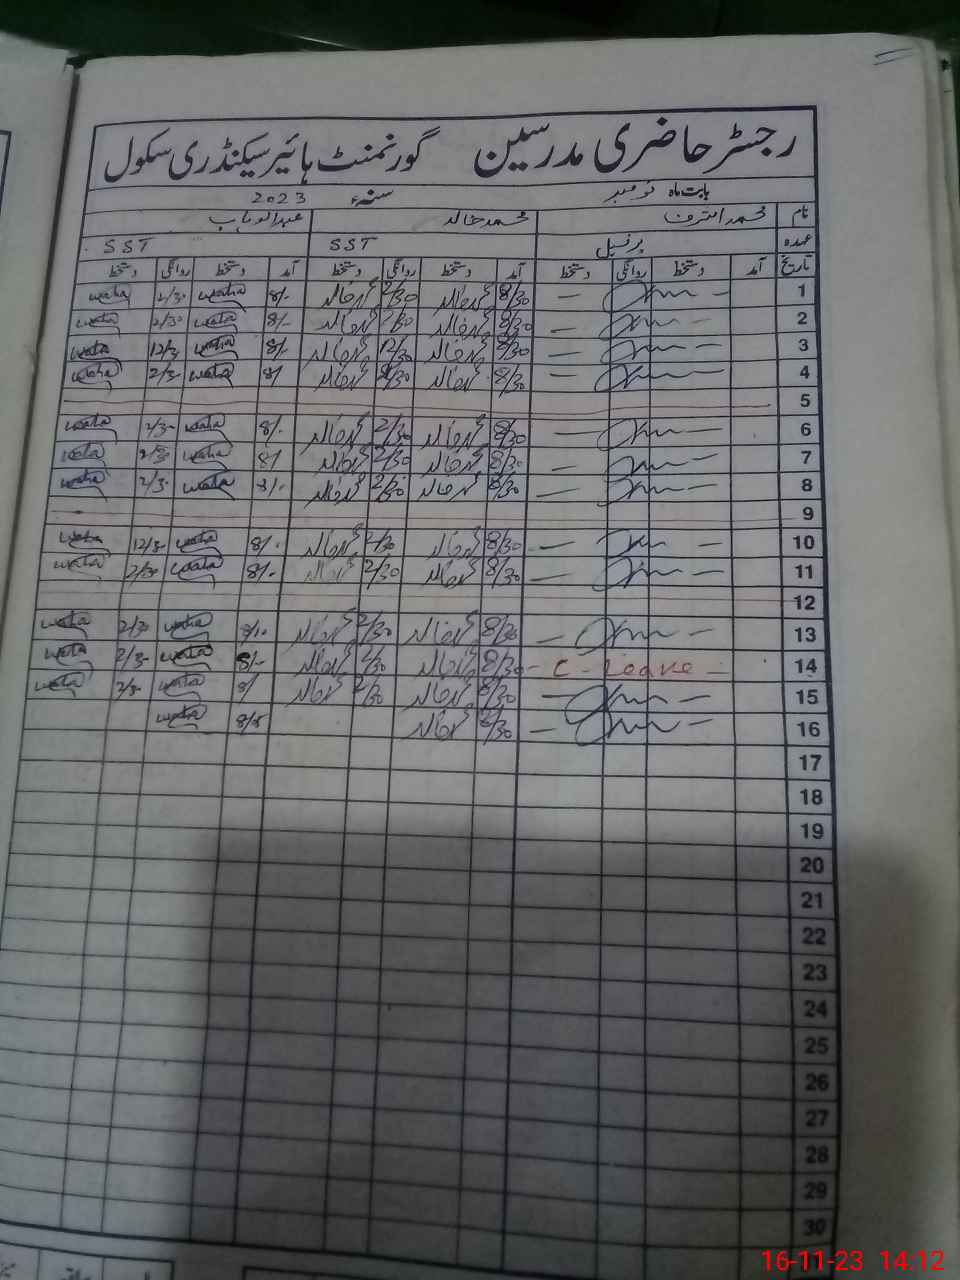 رجسٹر حاضری مدرسین گورنمنٹ ہائیر سیکنڈری سکول
بابت ماہ نومبر سنہء 2023
نام محمد اشرف محمد خالد عبدالوہاب
عہدہ پرنسپل SST SST
تاریخ آمد دستخط روانگی دستخط آمد دستخط روانگی دستخط آمد دستخط روانگی دستخط
1 8/30 محمد خالد 2/30 محمد خالد 8/- waha 2/30 waha
2 8/30 محمد خالد 2/30 محمد خالد 8/- waha 2/30 waha
3 8/30 محمد خالد 12/30 محمد خالد 8/- waha 12/3- waha
4 8/30 محمد خالد 2/30 محمد خالد 8/ waha 2/3- waha
5
6 8/30 محمد خالد 2/30 محمد خالد 8/- waha 2/3- waha
7 8/30 محمد خالد 2/30 محمد خالد 8/ waha 2/30 waha
8 8/30 محمد خالد 2/30 محمد خالد 8/- waha 2/3- waha
9
10 8/30 محمد خالد 2/30 محمد خالد 8/- waha 12/3- waha
11 8/30 محمد خالد 2/30 محمد خالد 8/- waha 2/30 waha
12
13 8/30 محمد خالد 2/30 محمد خالد waha 2/30 waha
14 C-leave 8/30 محمد خالد 2/30 محمد خالد 8/- waha 2/3- waha
15 8/30 محمد خالد 2/30 محمد خالد 8/ waha 2/3- waha
16 8/30 محمد خالد waha
17
18
19
20
21
22
23
24
25
26
27
28
29
30
16-11-23 14:12